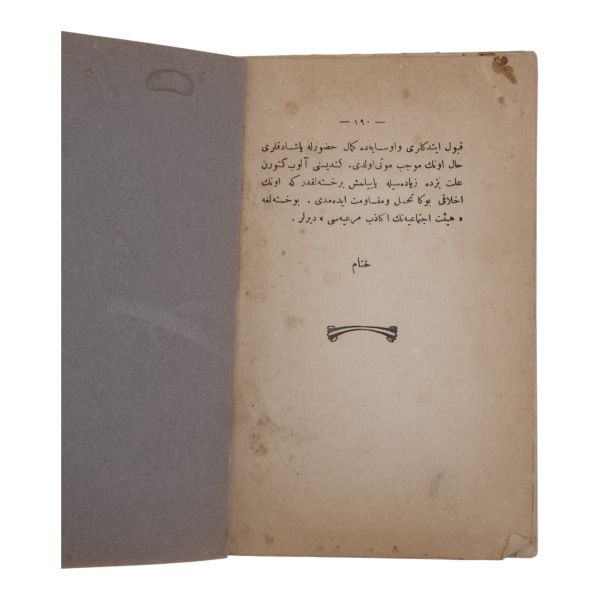 — ١٩٠ —
قبول ايتدكلرى و اوسايه‌ده كمال حضورله ياشادقلرى
حال اونك موجب موتى اولدى. كنديسنى آلوب كتورن
علت بزده زياده‌سيله ياييلمش برخسته‌لقدر كه اونك
اخلاقى بوكا تحمل و مقاومت ايده‌مدى . بوخسته‌لغه
« هيئت اجتماعيه‌نك اكاذب مرعيه‌سى » ديرلر .
ختام